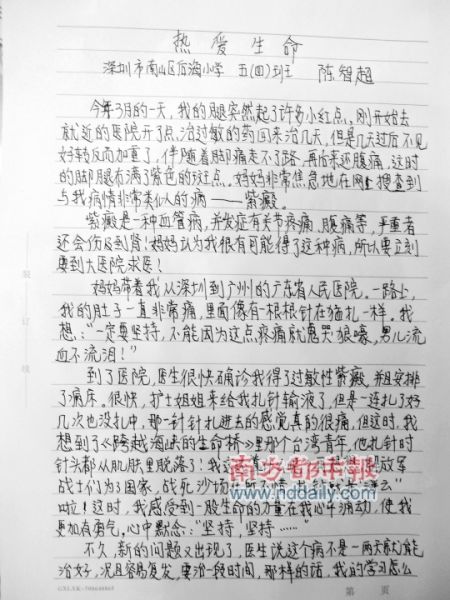 热爱生命
深圳市南山区后海小学 五(四)班 陈智超
今年3月的一天，我的腿突然起了许多小红点。刚开始去
就近的医院开了点治过敏的药回来治几天，但是几天过后不见
好转反而加重了，伴随着脚痛走不了路，再后来还腹痛，这时
的脚腿布满了紫色的斑点。妈妈非常焦急地在网上搜查到
与我病情非常类似人的病——紫癜。
紫癜是一种血管病，并发症有关节疼痛、腹痛等，严重者
还会伤及到肾！妈妈认为我很有可能得了这种病，所以要立刻
要到大医院求医！
妈妈带着我从深圳到广州的广东省人民医院。一路上，
我的肚子一直非常痛，里面像有一根根针在猫扎一样。我
想：“一定要坚持，不能因为这点疼痛就鬼哭狼嚎，男儿流
血不流泪！”
到了医院，医生很快确诊我得了过敏性紫癜，并且安排
了病床。很快，护士姐姐来给我扎针输液了，但是一连扎了好
几次也没扎中，那一针针扎进去的感觉真的很痛，但这时，我
想到了《跨越海峡的生命桥》里那个台湾青年，他扎针时
针头都从肌肤里脱落了！我
放军
战士们为了国家，战死沙场
啦！这时，我感受到一股生命的力量在我心中涌动，使我
更加有勇气，心中默念：“坚持，坚持……”
不久，新的问题又出现了，医生说这个病不是一两天就能
治好，况且容易复发，要治一段时间，那样的话，我的学习怎么
南方都市报
www.nddaily.com
装订线
第 页